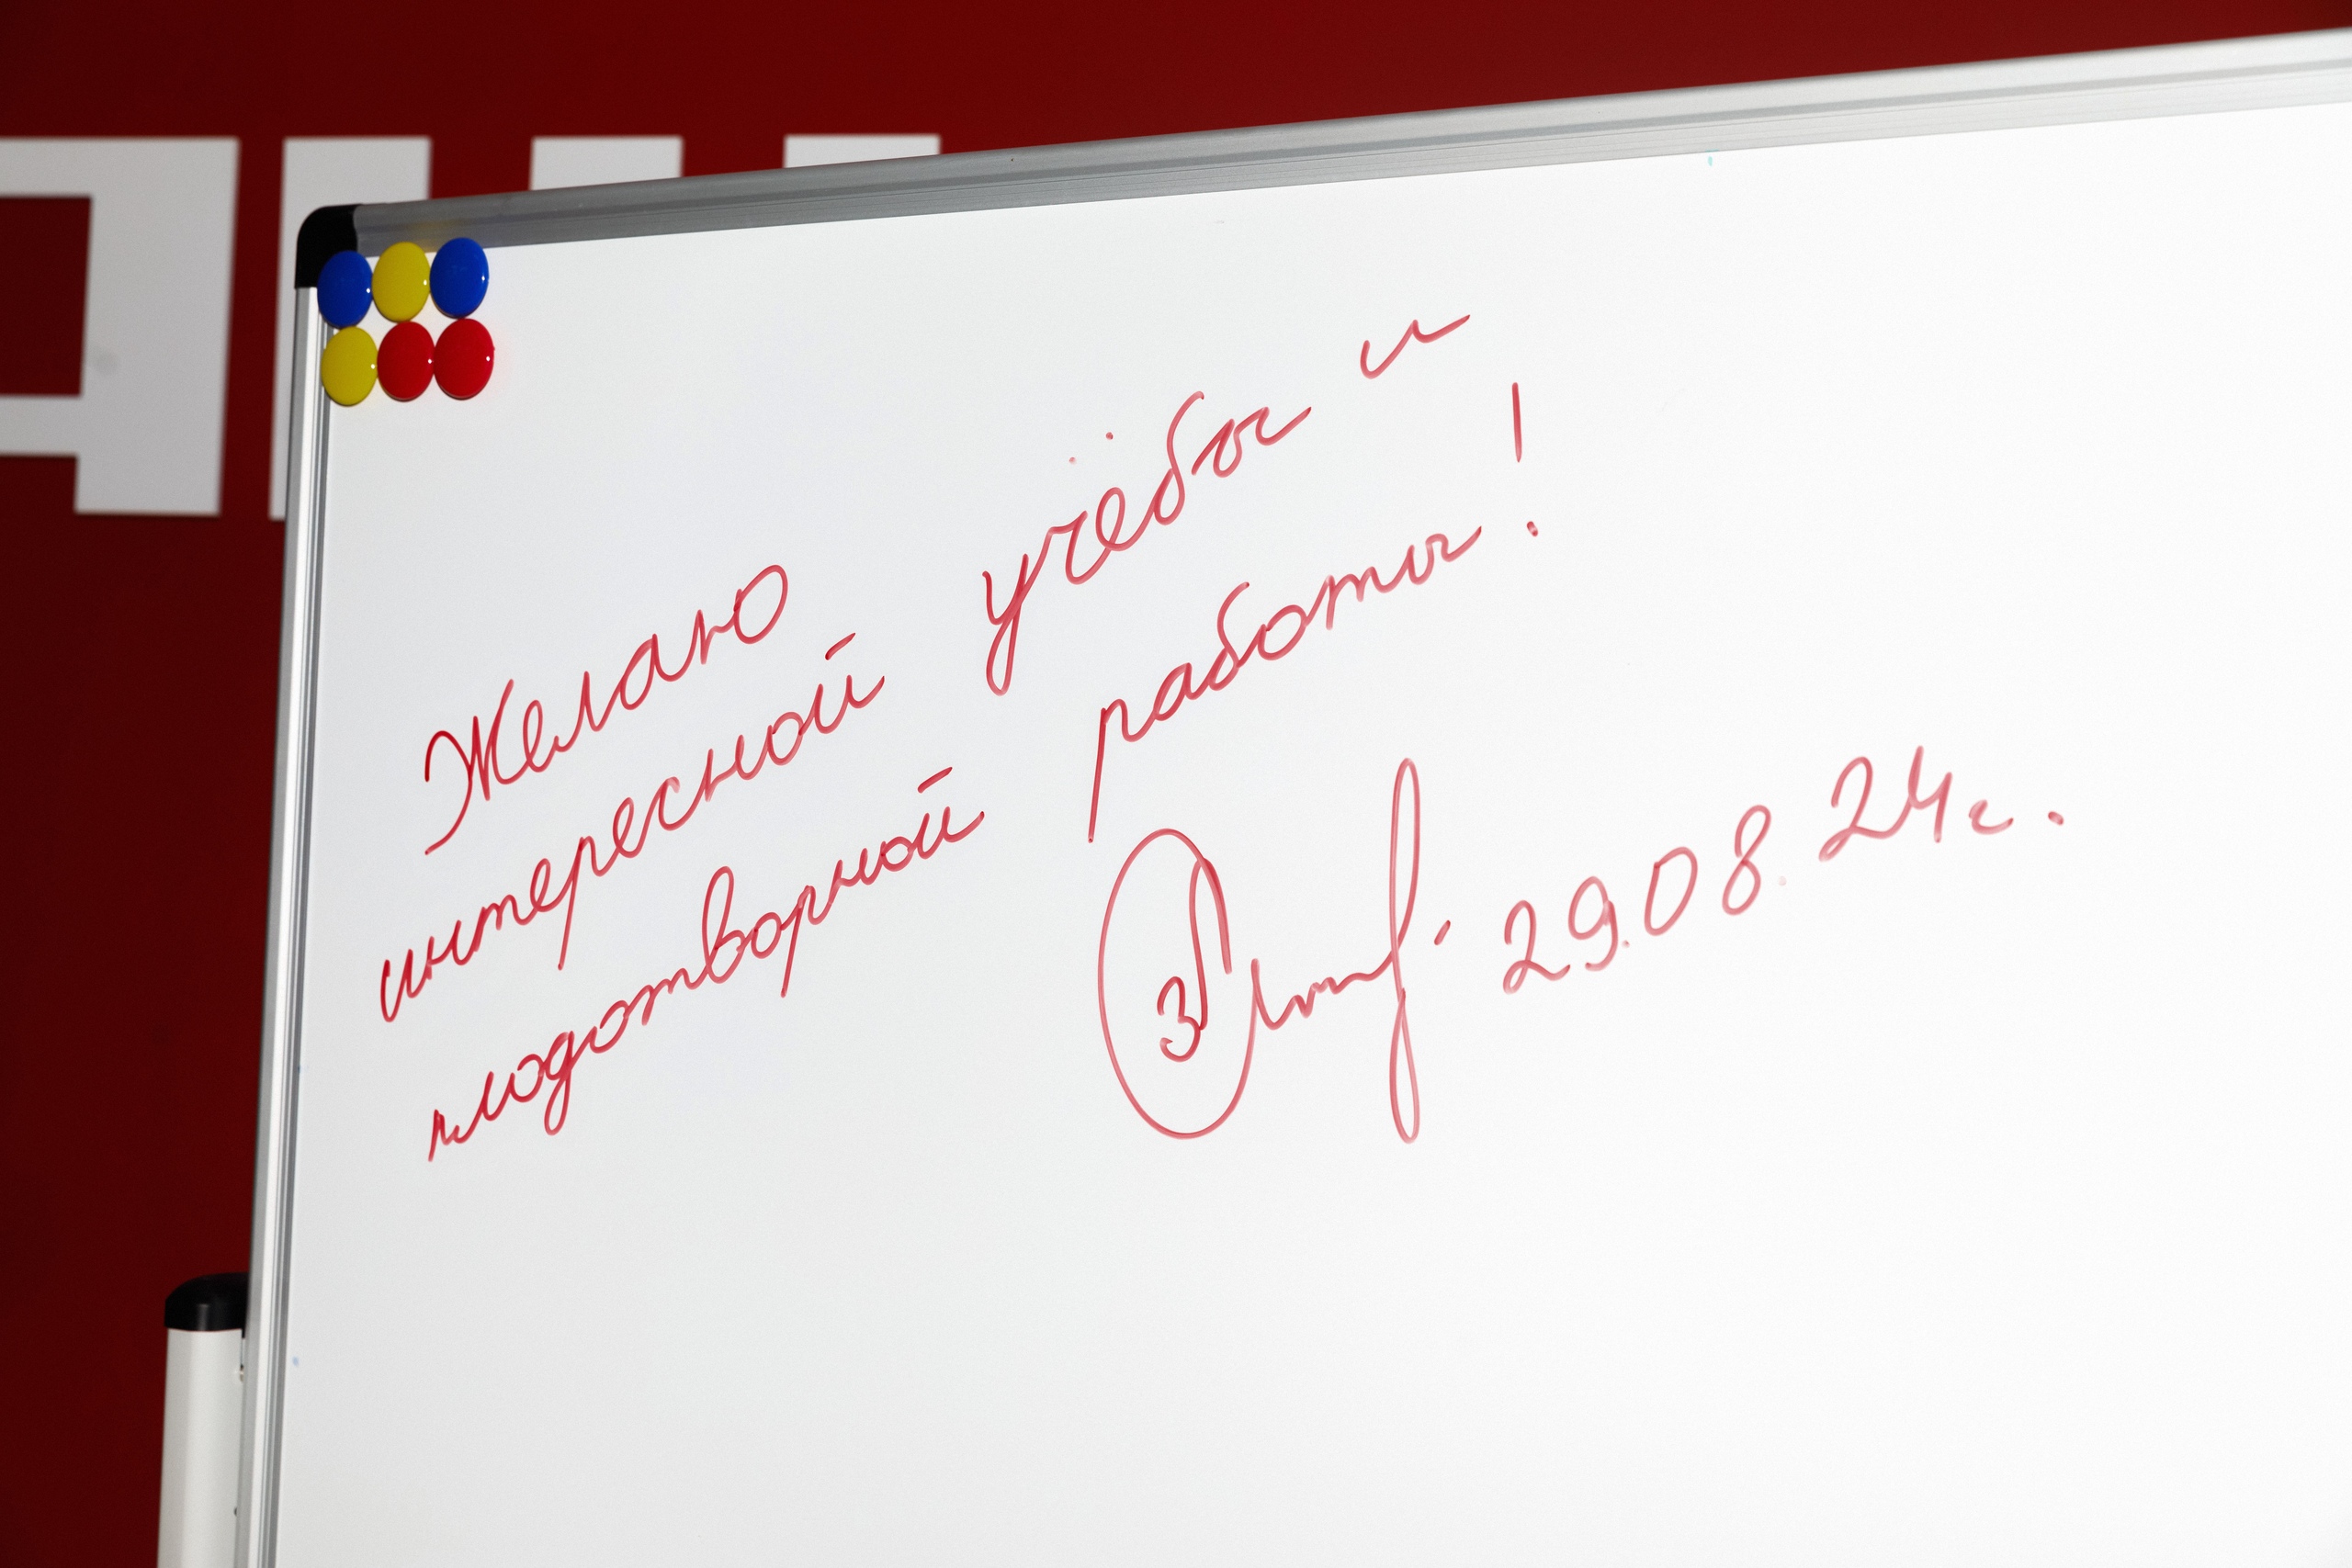 Желаю
интересной учёбы и
плодотворной работы!
29.08.24г.